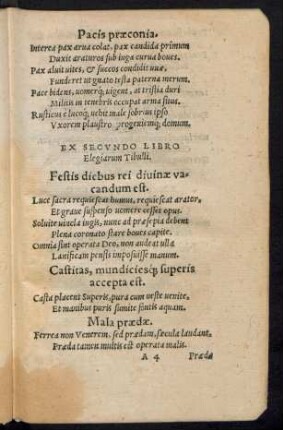 Pacis præconia.
Interea pax arua colat, pax candida primum
Duxit araturos sub iuga curua boues.
Pax aluit uites, & succos condidit uuæ,
Funderet ut gnato testa paterna merum.
Pace bidens, uomerq́; uigent, at tristia duri
Militis in tenebris occupat arma situs.
Rusticus è lucoq́; uehit male sobrius ipso
Vxorem plaustro progeniemq́; domum.
EX SECVNDO LIBRO
Elegiarum Tibulli.
Festis diebus rei diuinæ va-
candum est.
Luce sacra requiescat humus, requiescat arator,
Et graue suspenso uomere cesset opus.
Soluite uincla iugis, nunc ad præsepia debent
Plena coronato stare boues capite.
Omnia sint operata Deo, non audeat ulla
Lanificam pensis imposuisse manum.
Castitas, mundiciesq́; superis
accepta est.
Casta placent Superis, pura cum ueste uenite,
Et manibus puris sumite fontis aquam.
Mala prædæ.
Ferrea non Venerem, sed prædam, sæcula laudant,
Præda tamen multis est operata malis.
A 4 Præda